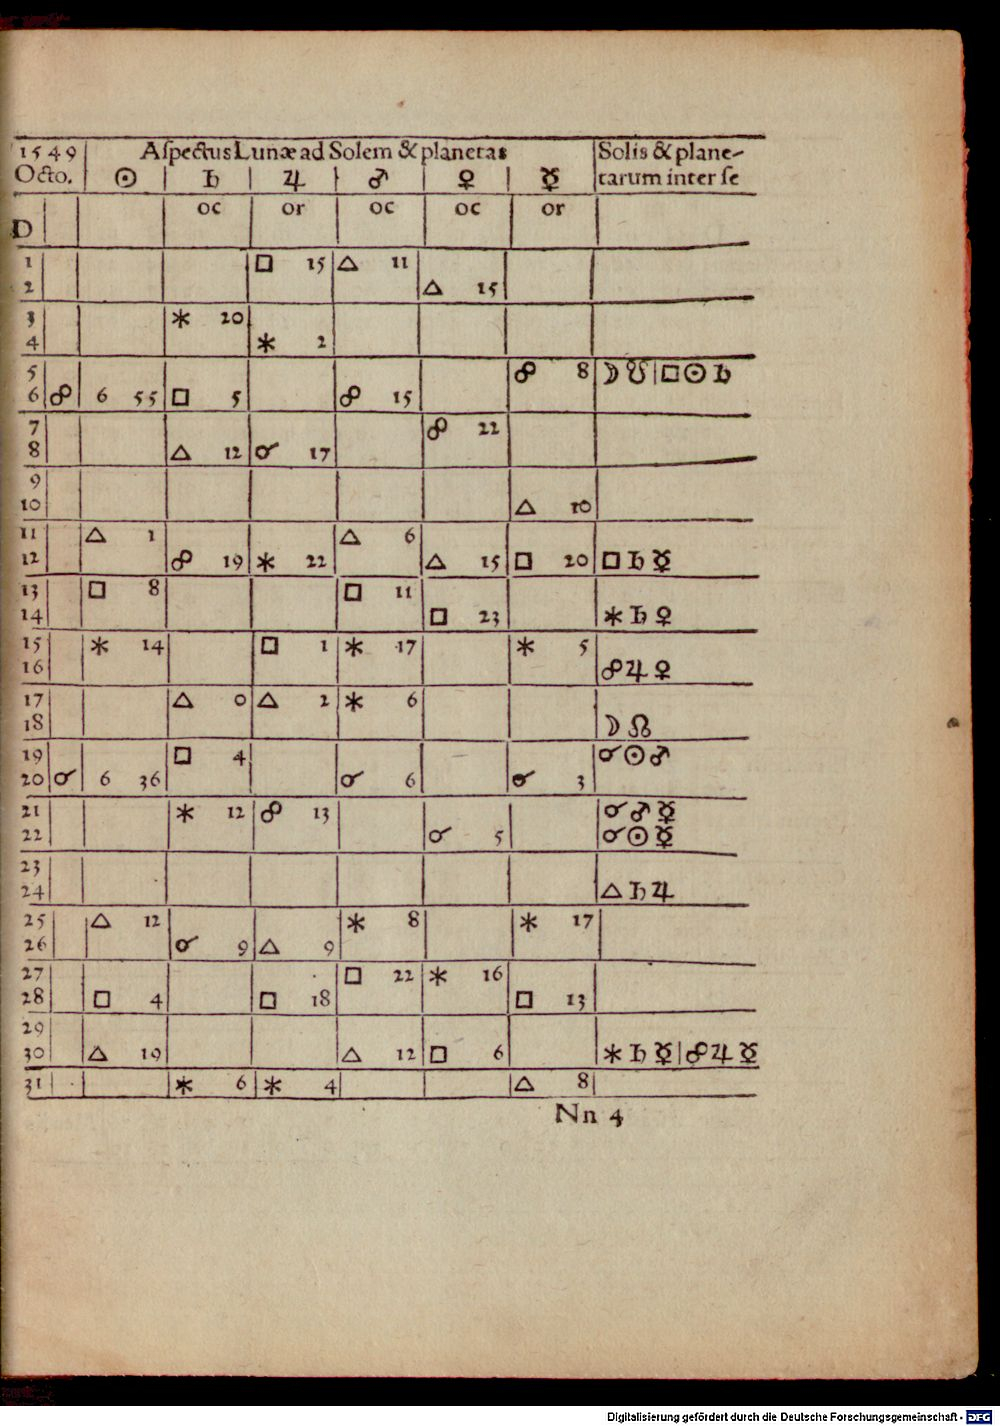 1549 Aſpectus Lunæ ad Solem & planetas Solis & plane-
Octo. ☉ ♄ ♃ ♂ ♀ ☿ tarum inter ſe
D oc or oc oc or
1 □ 15 △ 11
2 △ 15
3 ⚹ 20
4 ⚹ 2
5 ☍ 8 ☽ ☋ | □ ☉ ♄
6 ☍ 6 55 □ 5 ☍ 15
7 ☍ 22
8 △ 12 ☌ 17
9
10 △ 10
11 △ 1 △ 6
12 ☍ 19 ⚹ 22 △ 15 □ 20 □ ♄ ☿
13 □ 8 □ 11
14 □ 23 ⚹ ♄ ♀
15 ⚹ 14 □ 1 ⚹ 17 ⚹ 5
16 ☍ ♃ ♀
17 △ 0 △ 2 ⚹ 6
18 ☽ ☊
19 □ 4 ☌ ☉ ♂
20 ☌ 6 36 ☌ 6 ☌ 3
21 ⚹ 12 ☍ 13 ☌ ♂ ☿
22 ☌ 5 ☌ ☉ ☿
23
24 △ ♄ ♃
25 △ 12 ⚹ 8 ⚹ 17
26 ☌ 9 △ 9
27 □ 22 ⚹ 16
28 □ 4 □ 18 □ 13
29
30 △ 19 △ 12 □ 6 ⚹ ♄ ☿ | ☍ ♃ ☿
31 ⚹ 6 ⚹ 4 △ 8
Nn 4
Digitalisierung gefördert durch die Deutsche Forschungsgemeinschaft - DFG